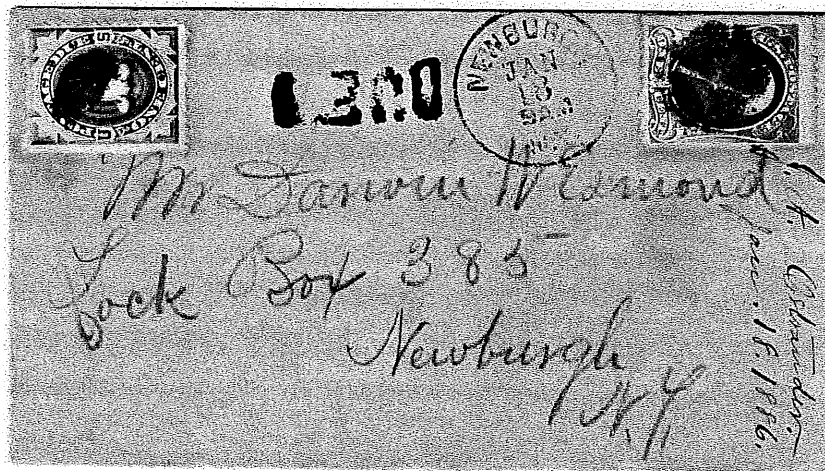 NEWBURG
JAN
13
9AM
Mr Darwin W Esmond
Lock Box 385
Newburgh
N.Y.
Ostrander.
Jan. 18. 1886.